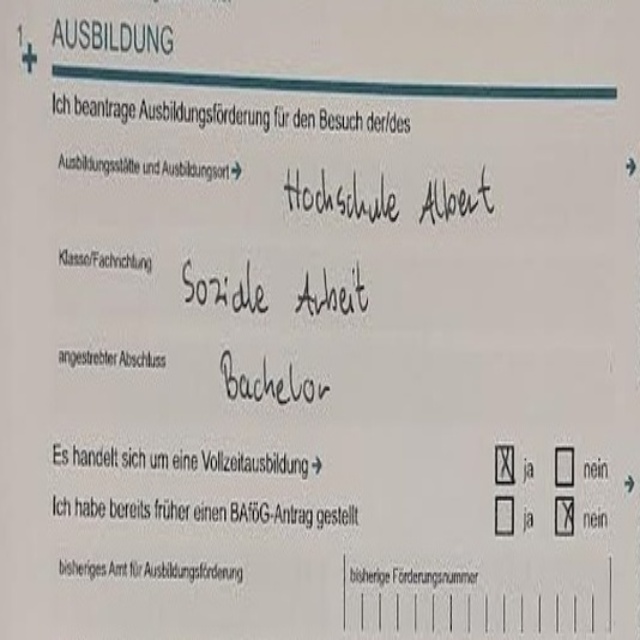 1
+ AUSBILDUNG
Ich beantrage Ausbildungsförderung für den Besuch der/des
Ausbildungsstätte und Ausbildungsort → Hochschule Albert
Klasse/Fachrichtung Soziale Arbeit
angestrebter Abschluss Bachelor
Es handelt sich um eine Vollzeitausbildung → X ja nein
Ich habe bereits früher einen BAföG-Antrag gestellt ja X nein
bisheriges Amt für Ausbildungsförderung bisherige Förderungsnummer